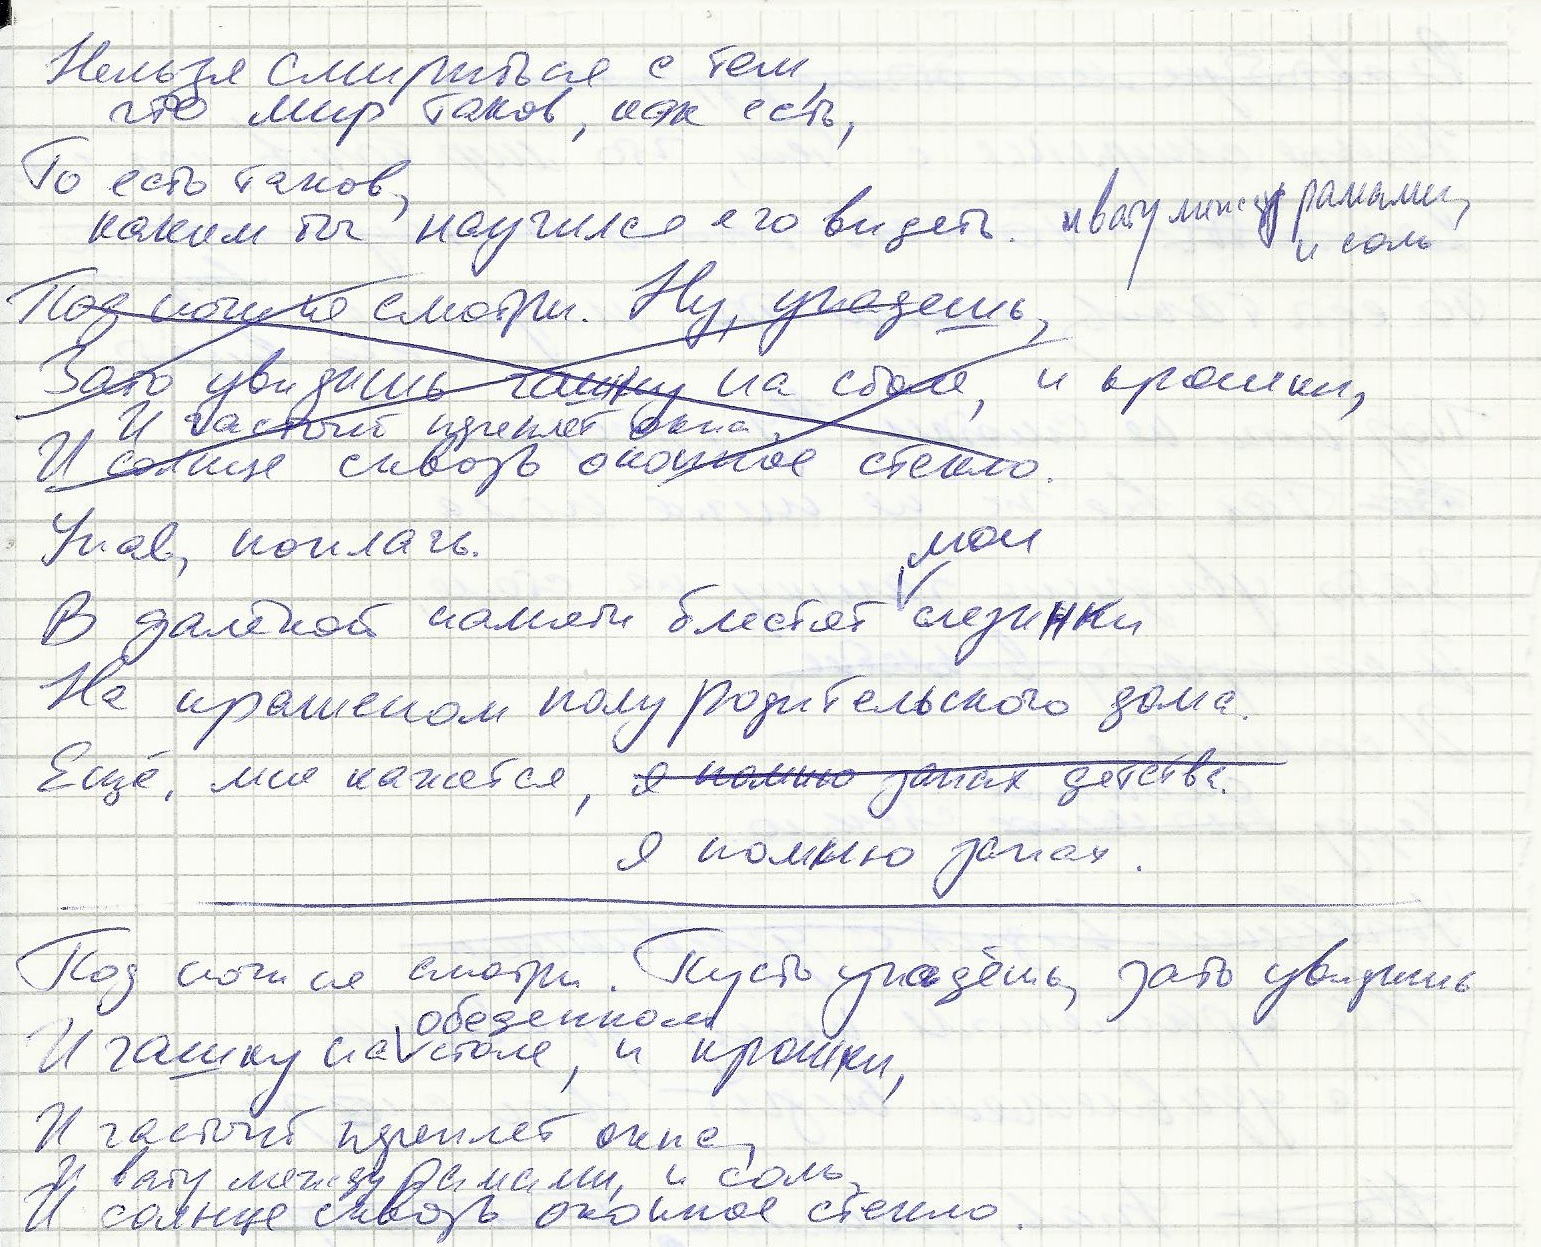 Нельзя смириться с тем,
что мир таков, как есть,
То есть таков,
каким ты научился его видеть.
и вату между рамами,
и соль
Под ноги не смотри. Ну, упадешь,
Зато увидишь чашку на столе, и крошки,
И частый переплет окна,
И солнце сквозь оконное стекло.
Упав, поплачь.
мои
В далёкой памяти блестят слезинки
На крашеном полу родительского дома.
Ещё, мне кажется, я помню запах детства.
я помню запах.
Под ноги не смотри. Пусть упадёшь, зато увидишь
обеденном
И чашку на столе, и крошки,
И частый переплет окна,
И вату между рамами, и соль,
И солнце сквозь оконное стекло.